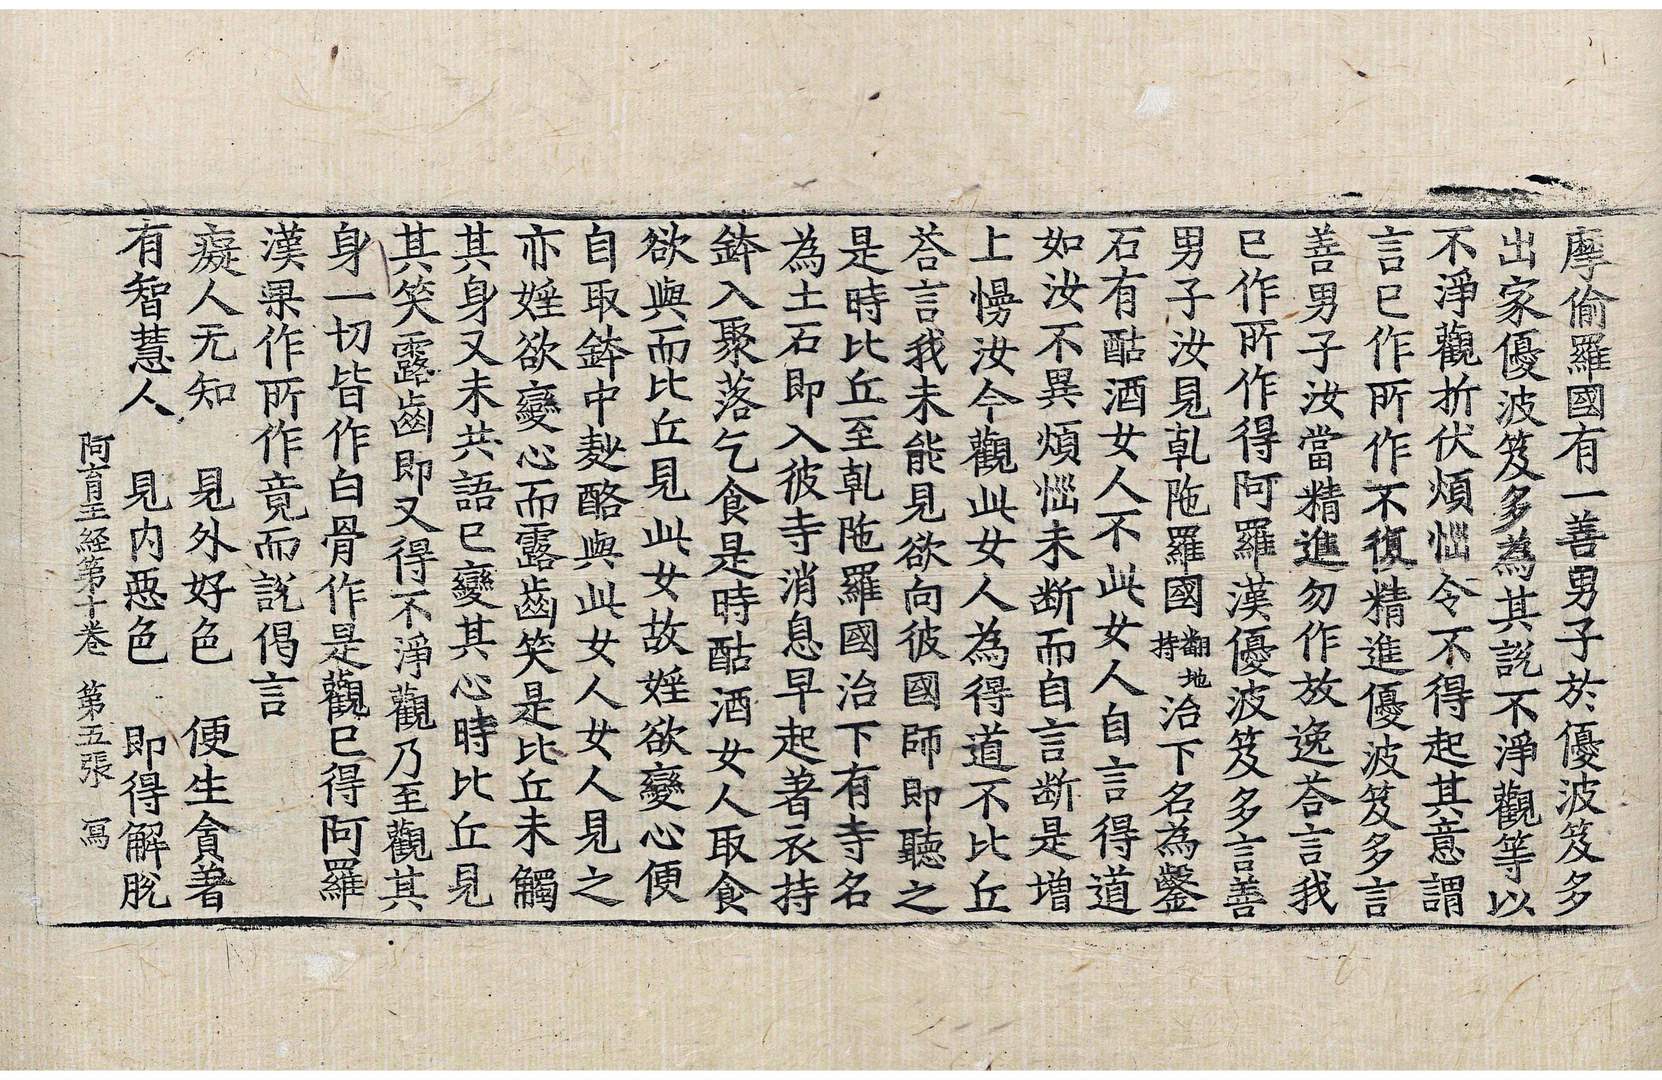 摩偷羅國有一善男子於優波笈多
出家優波笈多為其說不淨觀等以
不淨觀折伏煩惱令不得起其意謂
言已作所作不復精進優波笈多言
善男子汝當精進勿作放逸荅言我
已作所作得阿羅漢優波笈多言善
男子汝見乹陁羅國翻地持治下名為鑿
石有酤酒女人不此女人自言得道
如汝不異煩惱未断而自言断是增
上慢汝今觀此女人為得道不比丘
荅言我未能見欲向彼國師即聽之
是時比丘至乹陁羅國治下有寺名
為土石即入彼寺消息早起著衣持
鉢入聚落乞食是時酤酒女人取食
欲與而比丘見此女故婬欲變心便
自取鉢中麨酪與此女人女人見之
亦婬欲變心而露齒笑是比丘未觸
其身又未共語已變其心時比丘見
其笑露齒即又得不淨觀乃至觀其
身一切皆作白骨作是觀已得阿羅
漢果作所作竟而說偈言
癡人无知　見外好色　便生貪著
有智慧人　見內惡色　即得解脫
阿育王經第十卷　第五張　寫